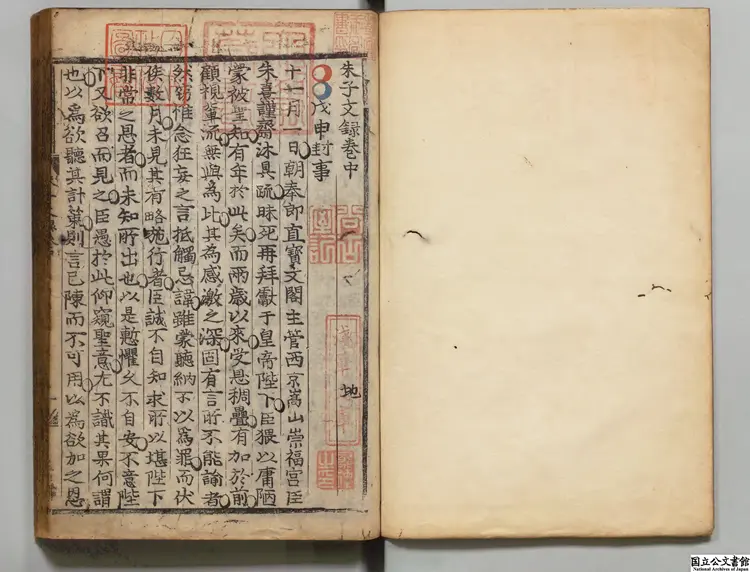 朱子文録巻中
戊申封事
十一月一日朝奉郎直寶文閣主管西京嵩山崇福宮臣
朱熹謹齋沐具疏昧死再拜獻于皇帝陛下臣猥以庸陋
蒙被聖知有年於此矣而兩歲以來受恩稠疊有加於前
顧視輩流無與為比其為感激之深固有言所不能諭者
然竊惟念狂妄之言抵觸忌諱雖蒙聽納不以為罪而伏
俟數月未見其有略施行者臣誠不自知求所以堪陛下
非常之恩者而未知所出也以是慙懼久不自安不意陛
下又欲召而見之臣愚於此仰窺聖意尤不識其果何謂
也以為欲聽其計策則言已陳而不可用以為欲加之恩
地
国立公文書館
National Archives of Japan